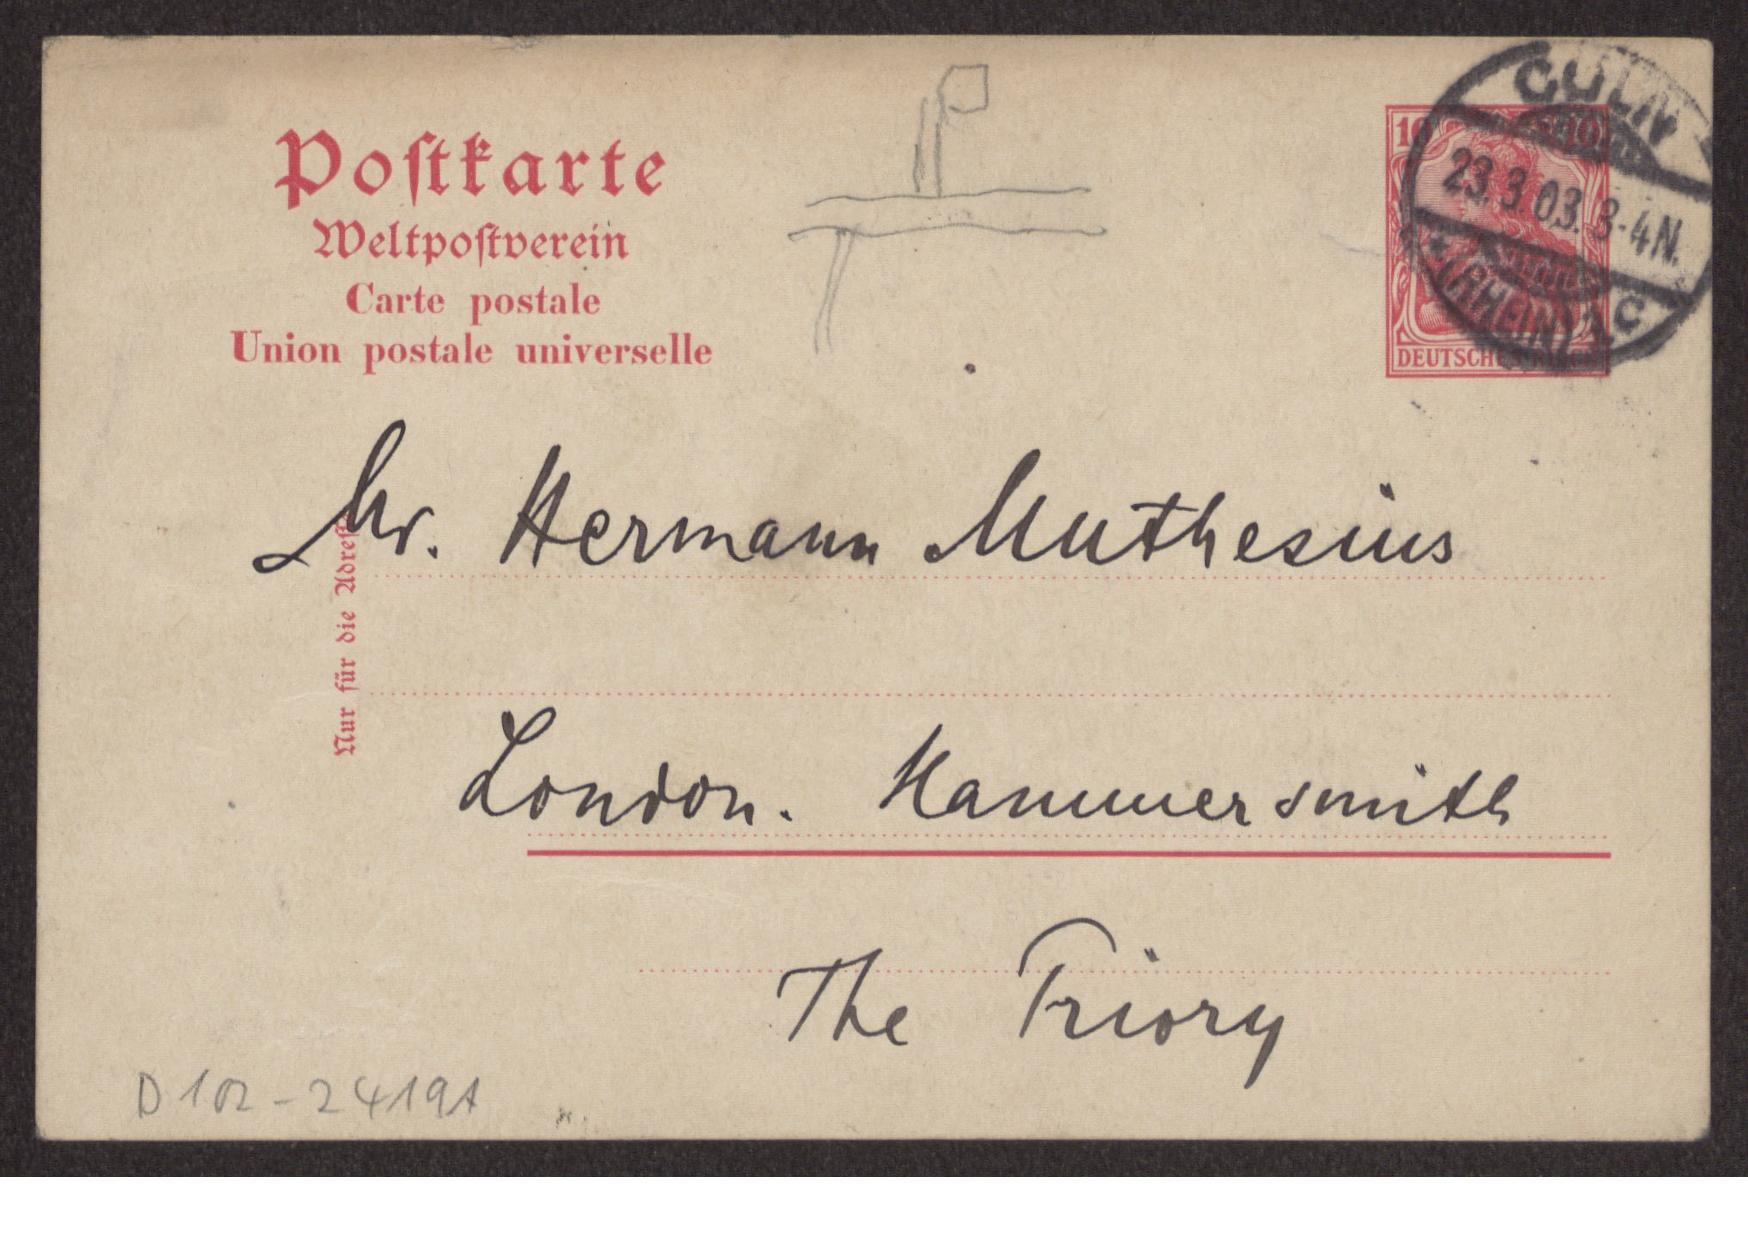 Poſtkarte
Weltpoſtverein
Carte postale
Union postale universelle
10 10
DEUTSCHES REICH
CÖLN
23.3.03. 3-4N.
* (RHEIN) 1 C
Nur für die Adreſſe
Mr. Hermann Muthesius
London. Hammersmith
The Priory
D102-24191